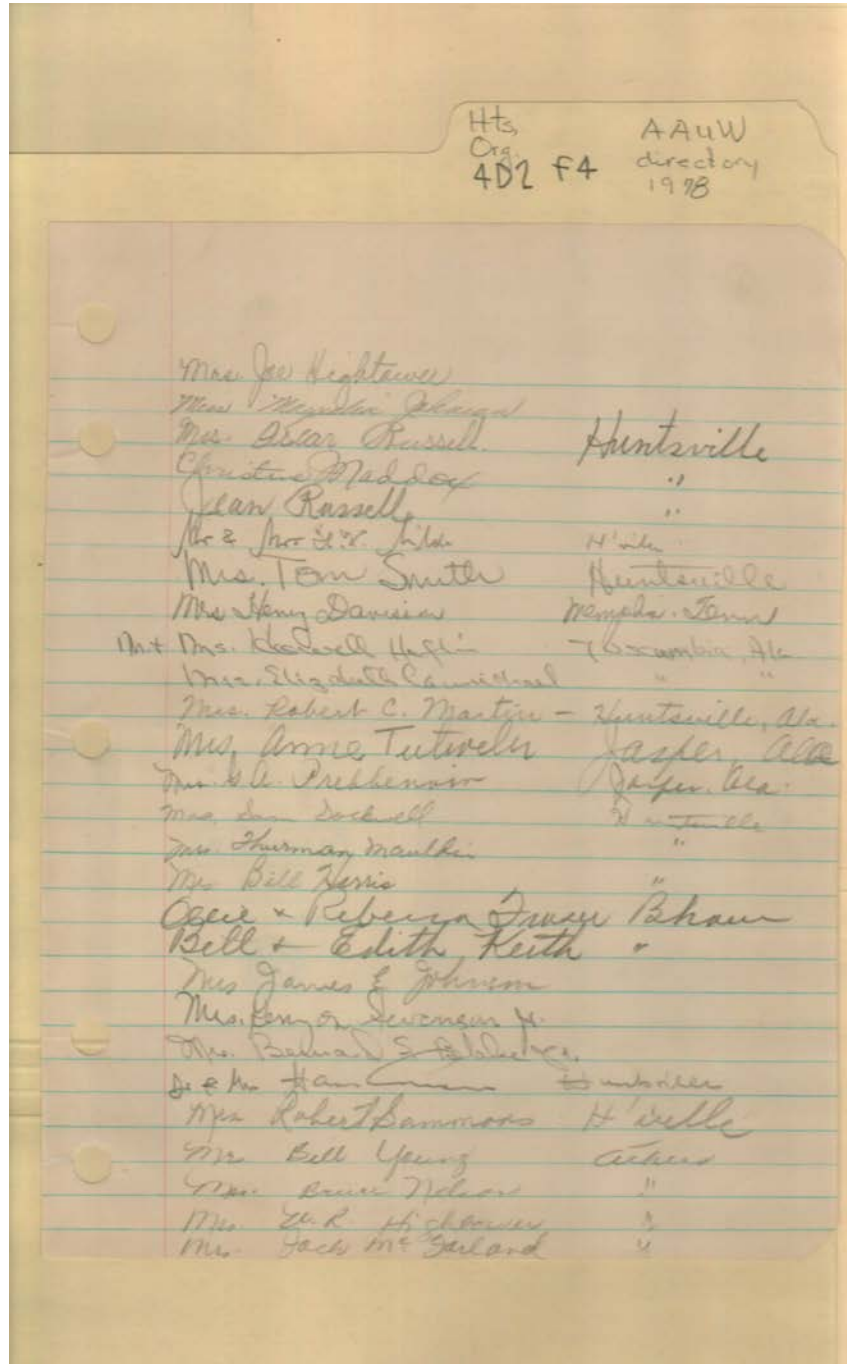 Hts,
Org.
4D2 F4
AAUW
directory
1978
Mrs. Joe Hightower
Miss Johnson
Mrs. Oscar Russell Huntsville
Christine Maddox "
Jean Russell "
Mr & Mrs H'ville
Mrs. Tom Smith Huntsville
Mrs Henry Davison Memphis. Tenn
Mr. + Mrs. Heflin Tuscumbia, Ala
Mrs. Elizabeth Carmichael " "
Mrs. Robert C. Martin – Huntsville, Ala.
Mrs. Anne Tutwiler Jasper, Ala
Mrs. Jasper, Ala.
Mrs. Sam Huntsville
Mrs. Thurman Mauldin "
Mrs Bill Harris "
& Rebecca Bham
Bill + Edith Keith "
Mrs James E Johnson
Mrs. Jr.
Mrs. Bernard S.
Dr & Mrs Huntsville
Mrs Robert Sammons H'ville
Mrs Bill Young Athens
Mrs. Bruce Nelson "
Mrs. W. R. Hightower "
Mrs. Jack McFarland "